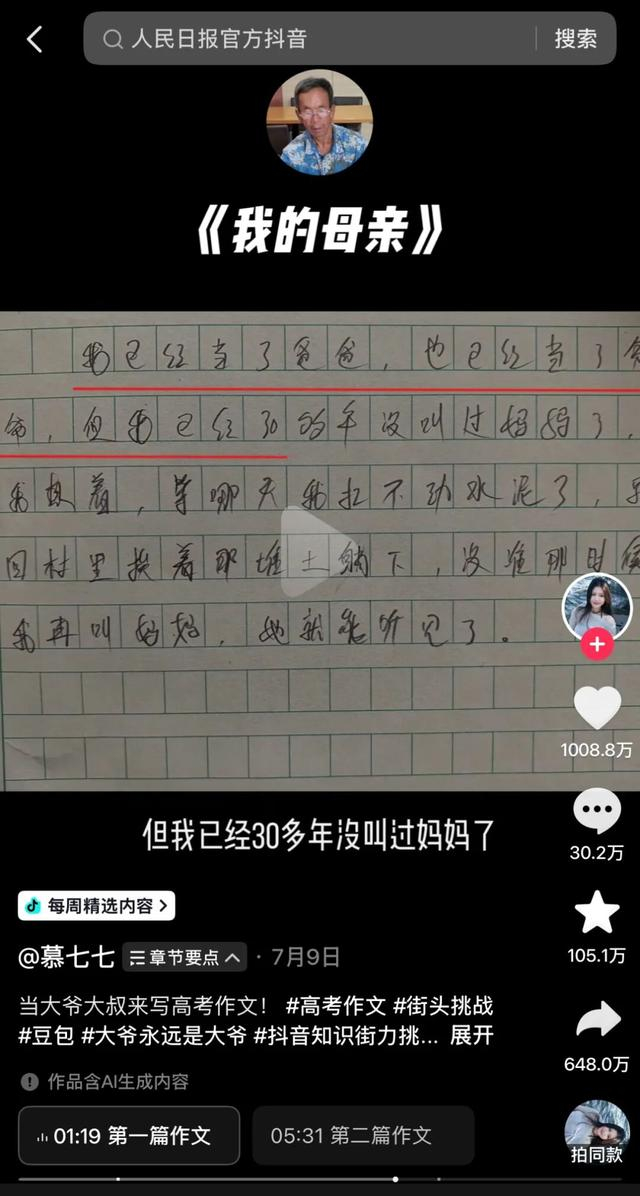 人民日报官方抖音
搜索
《我的母亲》
我已经当了爸爸，也已经当了爷
爷，但我已经30多年没叫过妈妈了，
我想着，等哪天我扛不动水泥了，
回村里挨着那堆土躺下，没准那时候
我再叫妈妈，她就能听见了。
1008.8万
但我已经30多年没叫过妈妈了
30.2万
每周精选内容
105.1万
@慕七七
章节要点
· 7月9日
当大爷大叔来写高考作文！ #高考作文 #街头挑战
#豆包 #大爷永远是大爷 #抖音知识街力挑... 展开
648.0万
作品含AI生成内容
01:19 第一篇作文
05:31 第二篇作文
拍同款